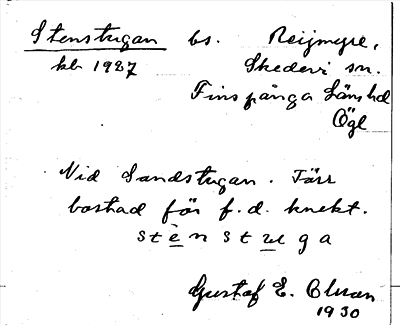 Stenstugan bs. Reijmyre,
kb 1927 Skedevi sn.
Finspånga Länshd
Ögl
Vid Sandstugan. Förr
bostad för f.d. knekt.
s t è n s t u g a
Gustaf E. Olsson
1930